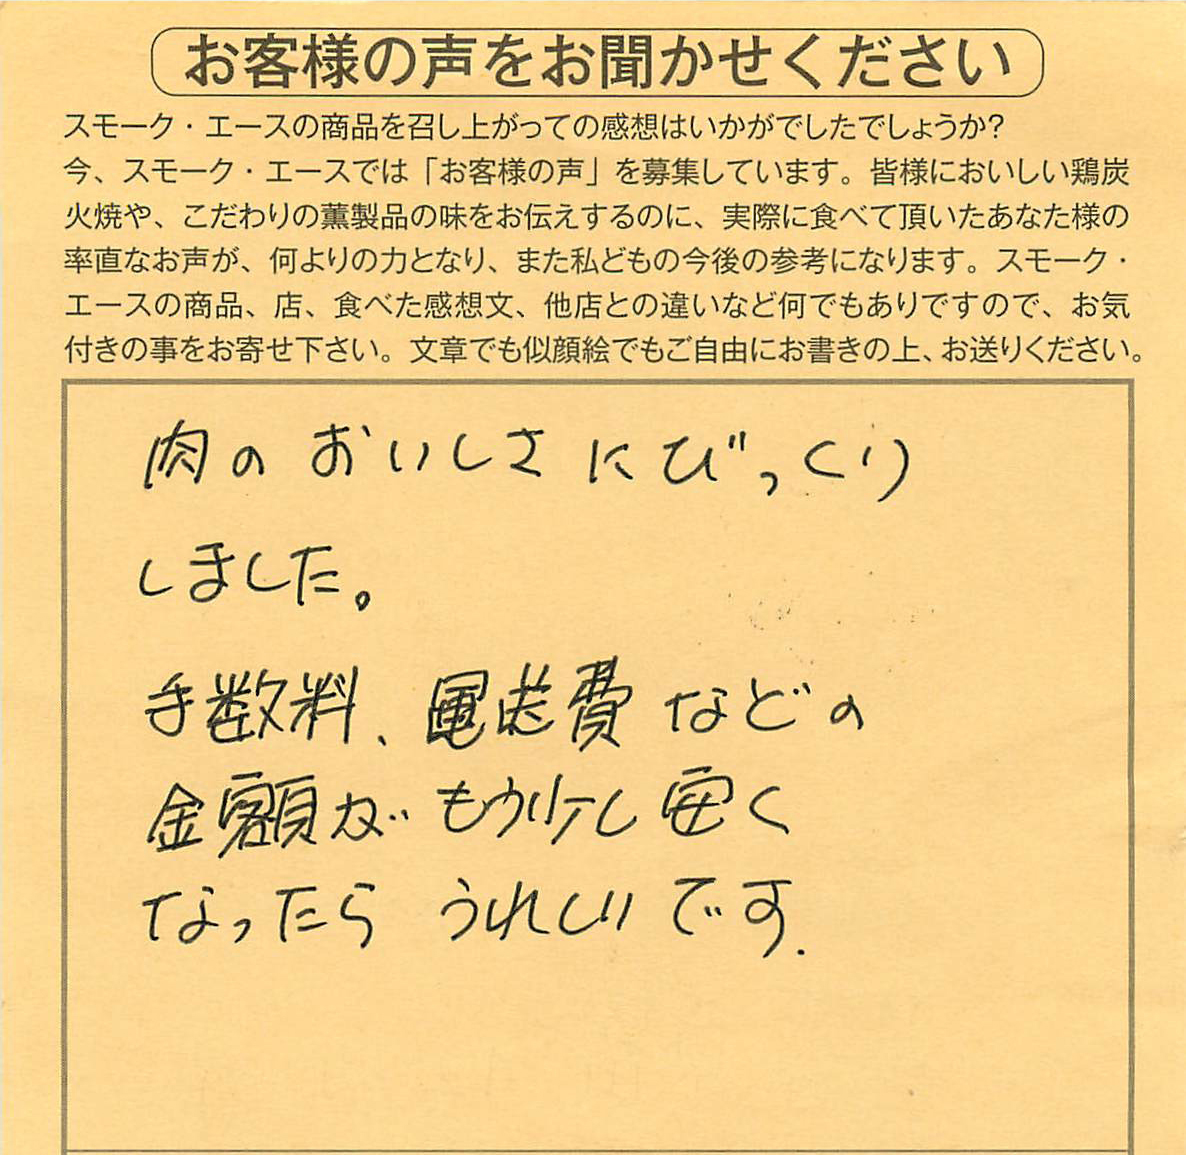 お客様の声をお聞かせください
スモーク・エースの商品を召し上がっての感想はいかがでしたでしょうか?
今、スモーク・エースでは「お客様の声」を募集しています。皆様においしい鶏炭
火焼や、こだわりの薫製品の味をお伝えするのに、実際に食べて頂いたあなた様の
率直なお声が、何よりの力となり、また私どもの今後の参考になります。スモーク・
エースの商品、店、食べた感想文、他店との違いなど何でもありですので、お気
付きの事をお寄せ下さい。文章でも似顔絵でもご自由にお書きの上、お送りください。
肉のおいしさにびっくり
しました。
手数料、運送費などの
金額がもう少し安く
なったらうれしいです.